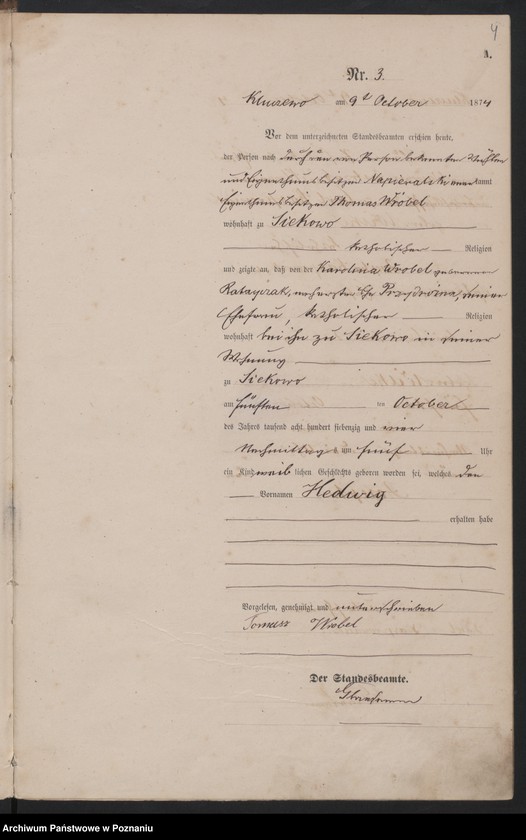 4
A.
Nr. 3.
Kluczewo am 9t October 1874
Vor dem unterzeichneten Standesbeamten erschien heute,
der Person nach durch den von Person bekannten
und Eigenthumsbesitzer Napieralski anerkannt
Eigenthumsbesitzer Thomas Wrobel
wohnhaft zu Siekowo
katholischer Religion
und zeigte an, daß von der Karolina Wrobel geborenen
Ratayczak, erster Ehe seiner
Ehefrau, katholischer Religion
wohnhaft bei ihm zu Siekowo in seiner
Wohnung
zu Siekowo
am fünften ten October
des Jahres tausend acht hundert siebenzig und vier
Nachmittags um fünf Uhr
ein Kind weiblichen Geschlechts geboren worden sei, welches den
Vornamen Hedwig
erhalten habe
Vorgelesen, genehmigt und unterschrieben
Tomasz Wrobel
Der Standesbeamte.
Archiwum Państwowe w Poznaniu